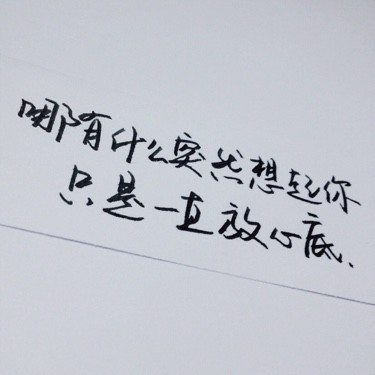 哪有什么突然想起你
只是一直放心底、